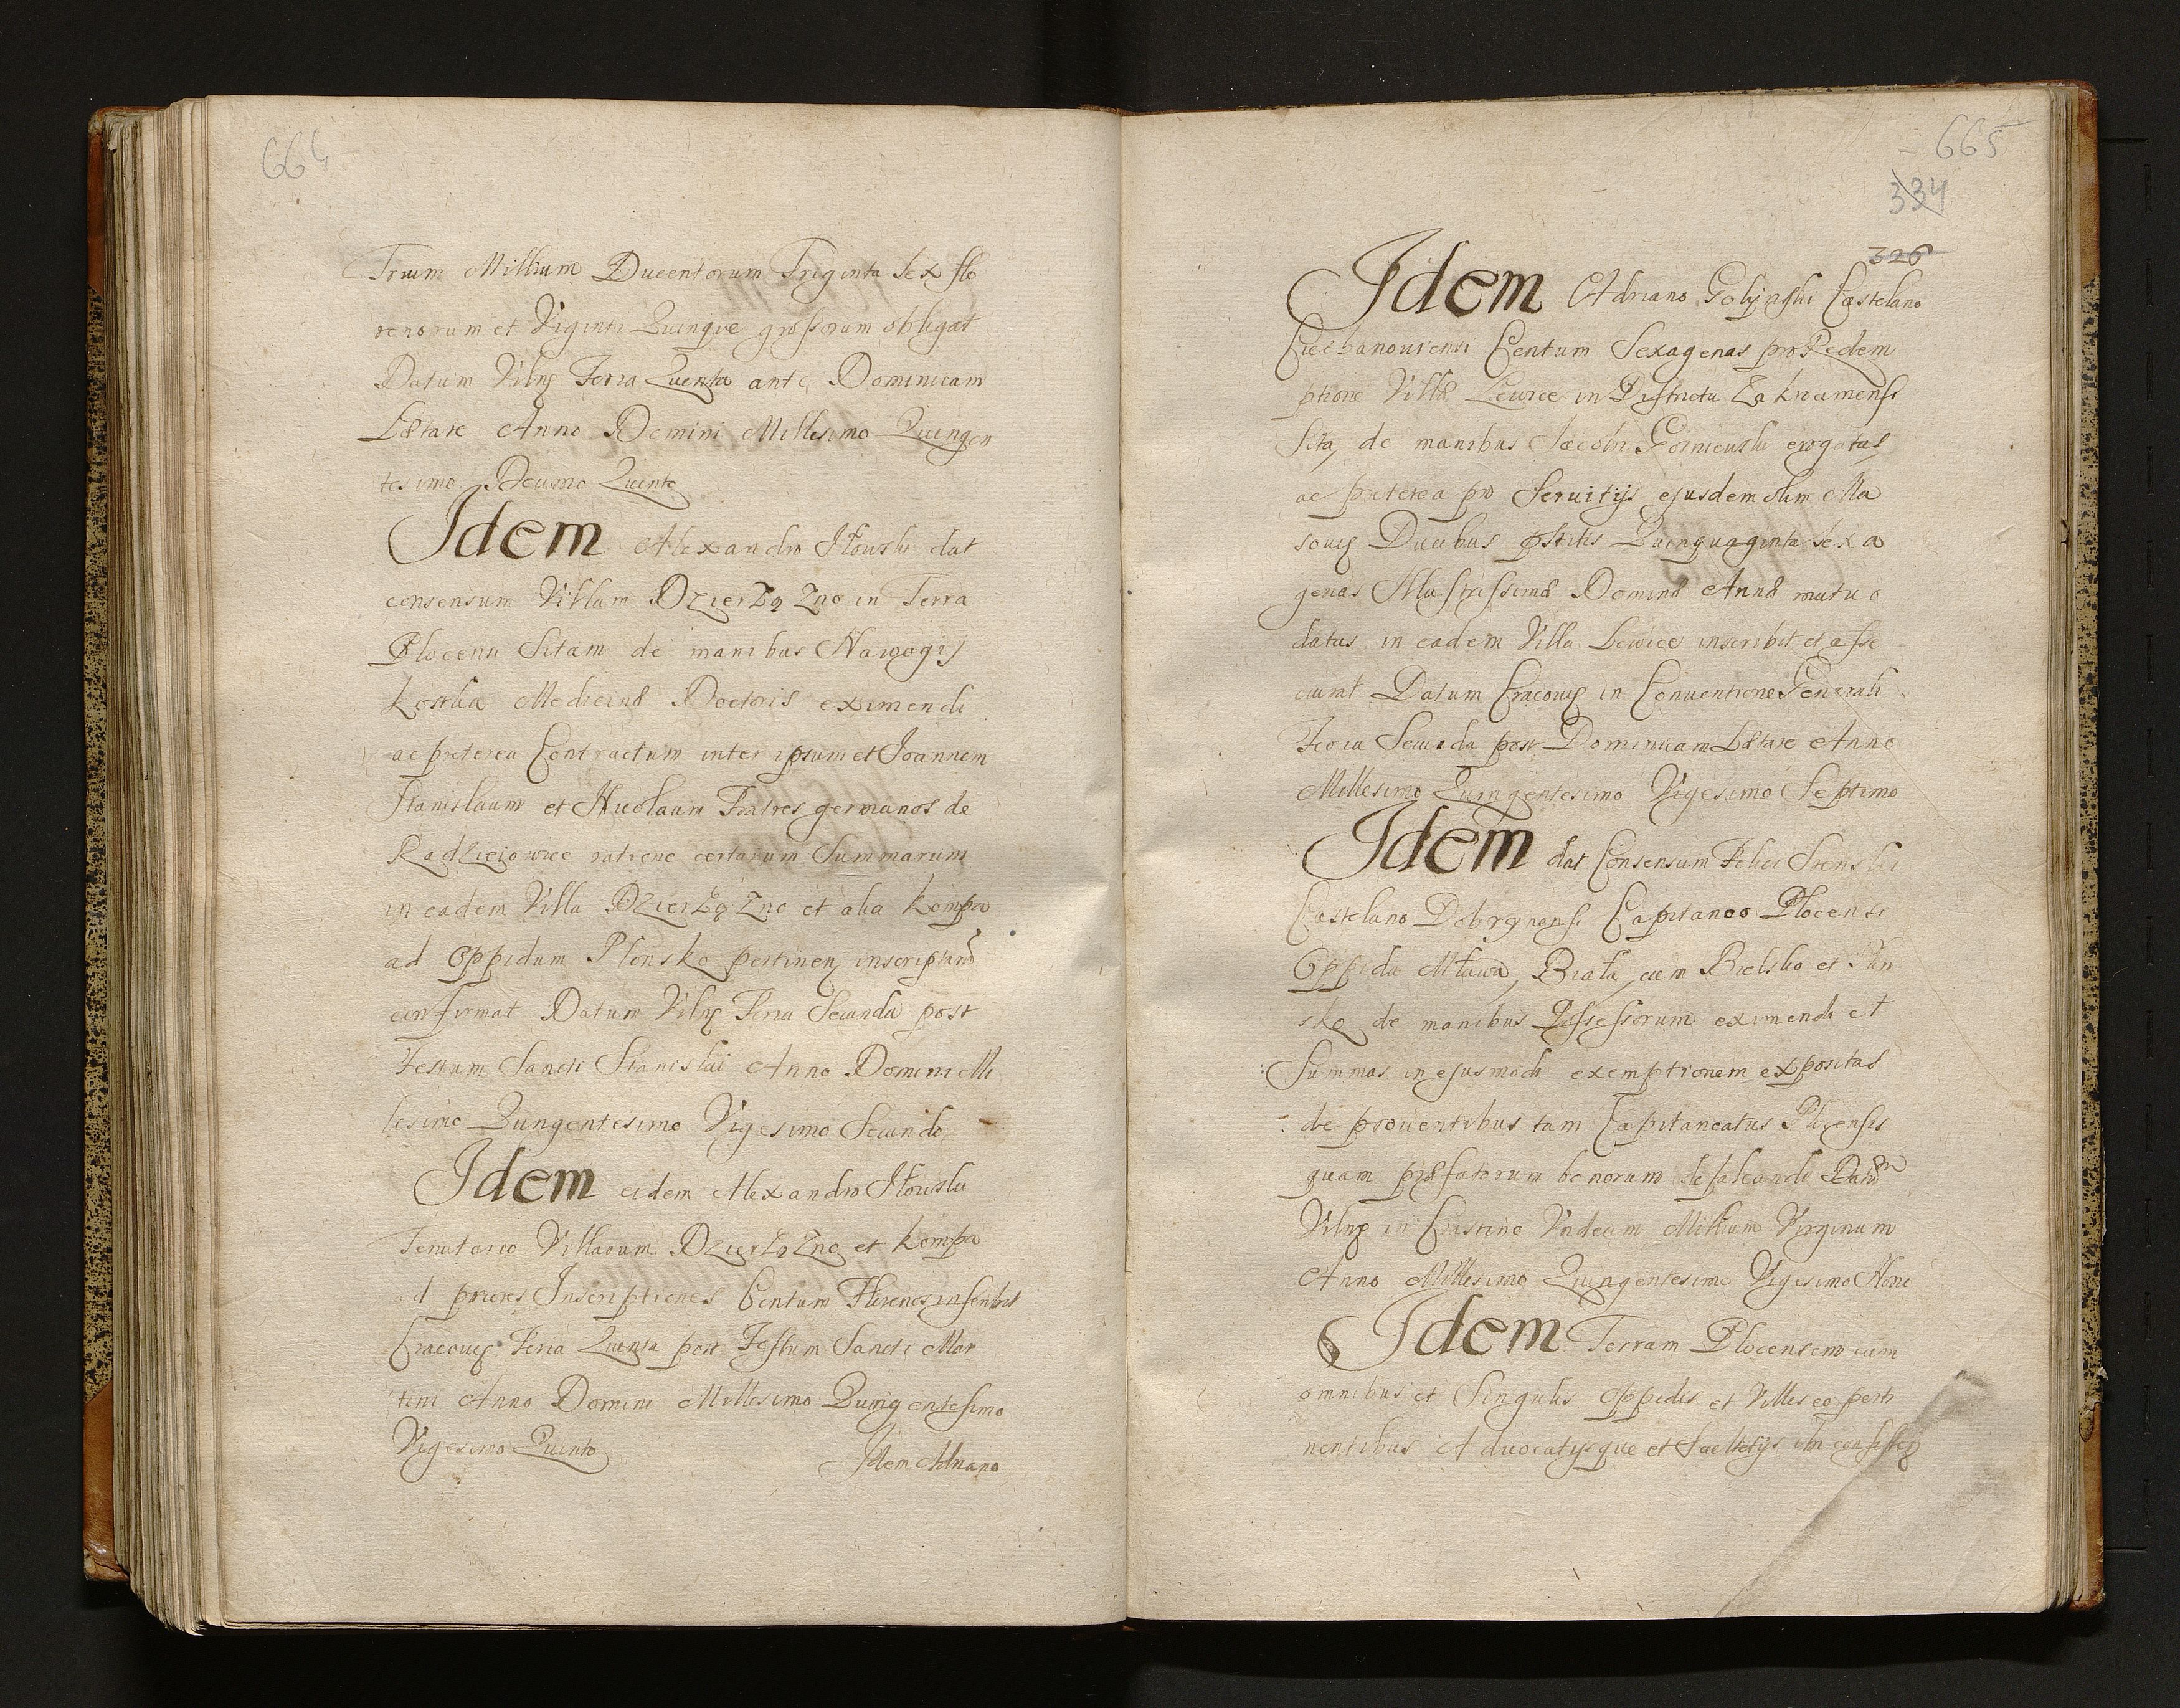 664
Trium Millium Ducentorum Triginta Sex flo
renorum et Viginti Quinque grossorum obligat
Datum Vilnę Feria Quinta ante Dominicam
Lætare Anno Domini Millesimo Quingen
tesimo Decimo Quinto
Idem Alexandro Iłouski dat
consensum Villam DzierząZno in Terra
Plocenū Sitam de manibus Nawogij
Kostka Medicinæ Doctoris eximendi
ac præterea Contractum inter ipsum et Joannem
Stanislaum et Nicolaum Fratres germanos de
Radzieiowice ratione certarum Summarum
in eadem Villa DzierząZno et alia Kempa
ad Oppidum Plonsko pertinen inscriptarū
confirmat Datum Vilnę Feria Secunda post
Festum Sancti Stanislai Anno Domini Mi
lesimo Quingentesimo Vigesimo Secundo
Idem eidem Alexandro Iłouski
Tenutario Villarum DzierząZno et Kempa
ad priores Inscriptiones Centum Florenos inscribit
Cracouię Feria Quinta post Festum Sancti Mar
tini Anno Domini Millesimo Quingentesimo
Vigesimo Quinto
Idem Adriano
665
334
326
Idem Adriano Golijnski Castelano
Ciechanouiensi Centum Sexagenas pro Redem
ptione Villæ Lewice in Districtu Zakroamensi
Sita, de manibus Jacobi Gosniewski erogatas
ac præterea pro Seruitijs ejusdem olim Ma
souię Ducibus pstitis Quinquaginta Sexa
genas Illustrissimæ Dominæ Annæ mutuo
datas in eadem Villa Lewice inscribit et asse
curat Datum Cracouię in Conuentione Generali
Feria Secunda post Dominicam Lætare Anno
Millesimo Quingentesimo Vigesimo Septimo
Idem dat Consensum Felici Srenski
Castelano Dobrynensi Capitaneo Plocensi
Oppida Mława, Biała, cum Bielsko et Płan
sko de manibus Possessorum eximendi et
Summas in ejusmodi exemptionem expositas
de prouentibus tam Capitaneatus Plocensis
quam præfatorum bonorum defalcandi Datū
Vilnę in Crastino Vndecim Millium Virginum
Anno Millesimo Quingentesimo Vigesimo Nono
Idem Terram Plocensem cum
omnibus et Singulis Oppidis et Villis eo perti
nentibus Aduocatijsque et Scultetijs in consisteñ